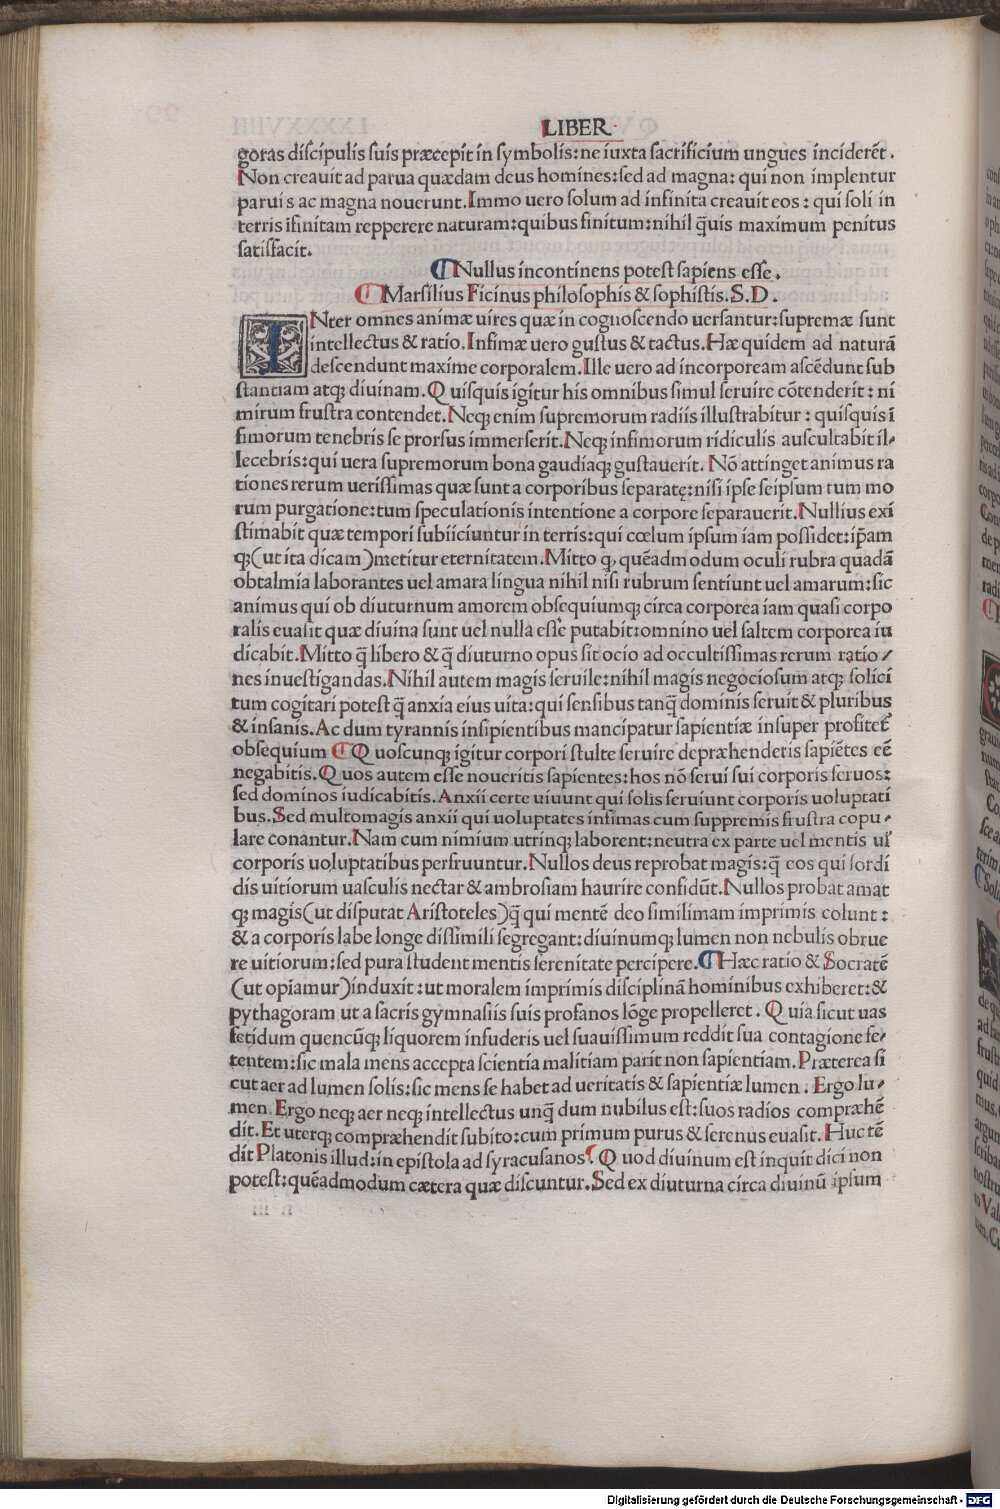 LIBER
goras discipulis suis præcepit in symbolis: ne iuxta sacrificium ungues inciderēt.
Non creauit ad parua quædam deus homines: sed ad magna: qui non implentur
paruis ac magna nouerunt. Immo uero solum ad infinita creauit eos: qui soli in
terris īfinitam repperere naturam: quibus finitum: nihil q̄uis maximum penitus
satisfacit.
¶Nullus incontinens potest sapiens esse.
¶Marsilius Ficinus philosophis & sophistis. S. D.
INter omnes animæ uires quæ in cognoscendo uersantur: supremæ sunt
intellectus & ratio. Infimæ uero gustus & tactus. Hæ quidem ad naturā
descendunt maxime corporalem. Ille uero ad incorpoream ascēdunt sub
stantiam atq; diuinam. Quisquis igitur his omnibus simul seruire cōtenderit: ni
mirum frustra contendet. Neq; enim supremorum radiis illustrabitur: quisquis ī
fimorum tenebris se prorsus immerserit. Neq; infimorum ridiculis auscultabit il-
lecebris: qui uera supremorum bona gaudiaq; gustauerit. Nō attinget animus ra
tiones rerum uerissimas quæ sunt a corporibus separatę: nisi ipse seipsum tum mo
rum purgatione: tum speculationis intentione a corpore separauerit. Nullius exi
stimabit quæ tempori subiiciuntur in terris: qui cœlum ipsum iam possidet: ip̄am
q; (ut ita dicam) metitur eternitatem. Mitto q, quēadmodum oculi rubra quadā
obtalmia laborantes uel amara lingua nihil nisi rubrum sentiunt uel amarum: sic
animus qui ob diuturnum amorem obsequiumq; circa corporea iam quasi corpo
ralis euasit quæ diuina sunt uel nulla esse putabit: omnino uel saltem corporea iu
dicabit. Mitto q̄ libero & q̄ diuturno opus sit ocio ad occultissimas rerum ratio/
nes inuestigandas. Nihil autem magis seruile: nihil magis negociosum atq; solici
tum cogitari potest q̄ anxia eius uita: qui sensibus tanq̄ dominis seruit & pluribus
& insanis. Ac dum tyrannis insipientibus mancipatur sapientiæ insuper profitet̄
obsequium ¶Quoscunq; igitur corpori stulte seruire depræhenderis sapiētes eē
negabitis. Quos autem esse noueritis sapientes: hos nō serui sui corporis seruos:
sed dominos iudicabitis. Anxii certe uiuunt qui solis seruiunt corporis uoluptati
bus. Sed multomagis anxii qui uoluptates infimas cum suppremis frustra copu-
lare conantur. Nam cum nimium utrinq; laborent: neutra ex parte uel mentis ul̄
corporis uoluptatibus perfruuntur. Nullos deus reprobat magis: q̄ eos qui sordi
dis uitiorum uasculis nectar & ambrosiam haurire confidūt. Nullos probat amat
q; magis (ut disputat Aristoteles) q̄ qui mentē deo similimam imprimis colunt:
& a corporis labe longe dissimili segregant: diuinumq; lumen non nebulis obrue
re uitiorum: sed pura student mentis serenitate percipere. ¶Hæc ratio & Socratē
(ut opiamur) induxit: ut moralem imprimis disciplinā hominibus exhiberet: &
pythagoram ut a sacris gymnasiis suis profanos lōge propelleret. Quia sicut uas
fetidum quencūq; liquorem infuderis uel suauissimum reddit sua contagione fe-
tentem: sic mala mens accepta scientia malitiam parit non sapientiam. Præterea si
cut aer ad lumen solis: sic mens se habet ad ueritatis & sapientiæ lumen. Ergo lu-
men. Ergo neq; aer neq; intellectus unq̄ dum nubilus est: suos radios compræhē
dit. Et uterq; compræhendit subito: cum primum purus & serenus euasit. Huc tē
dit Platonis illud: in epistola ad syracusanos. Quod diuinum est inquit dici non
potest: quēadmodum cætera quæ discuntur. Sed ex diuturna circa diuinū ipsum
Digitalisierung gefördert durch die Deutsche Forschungsgemeinschaft - DFG